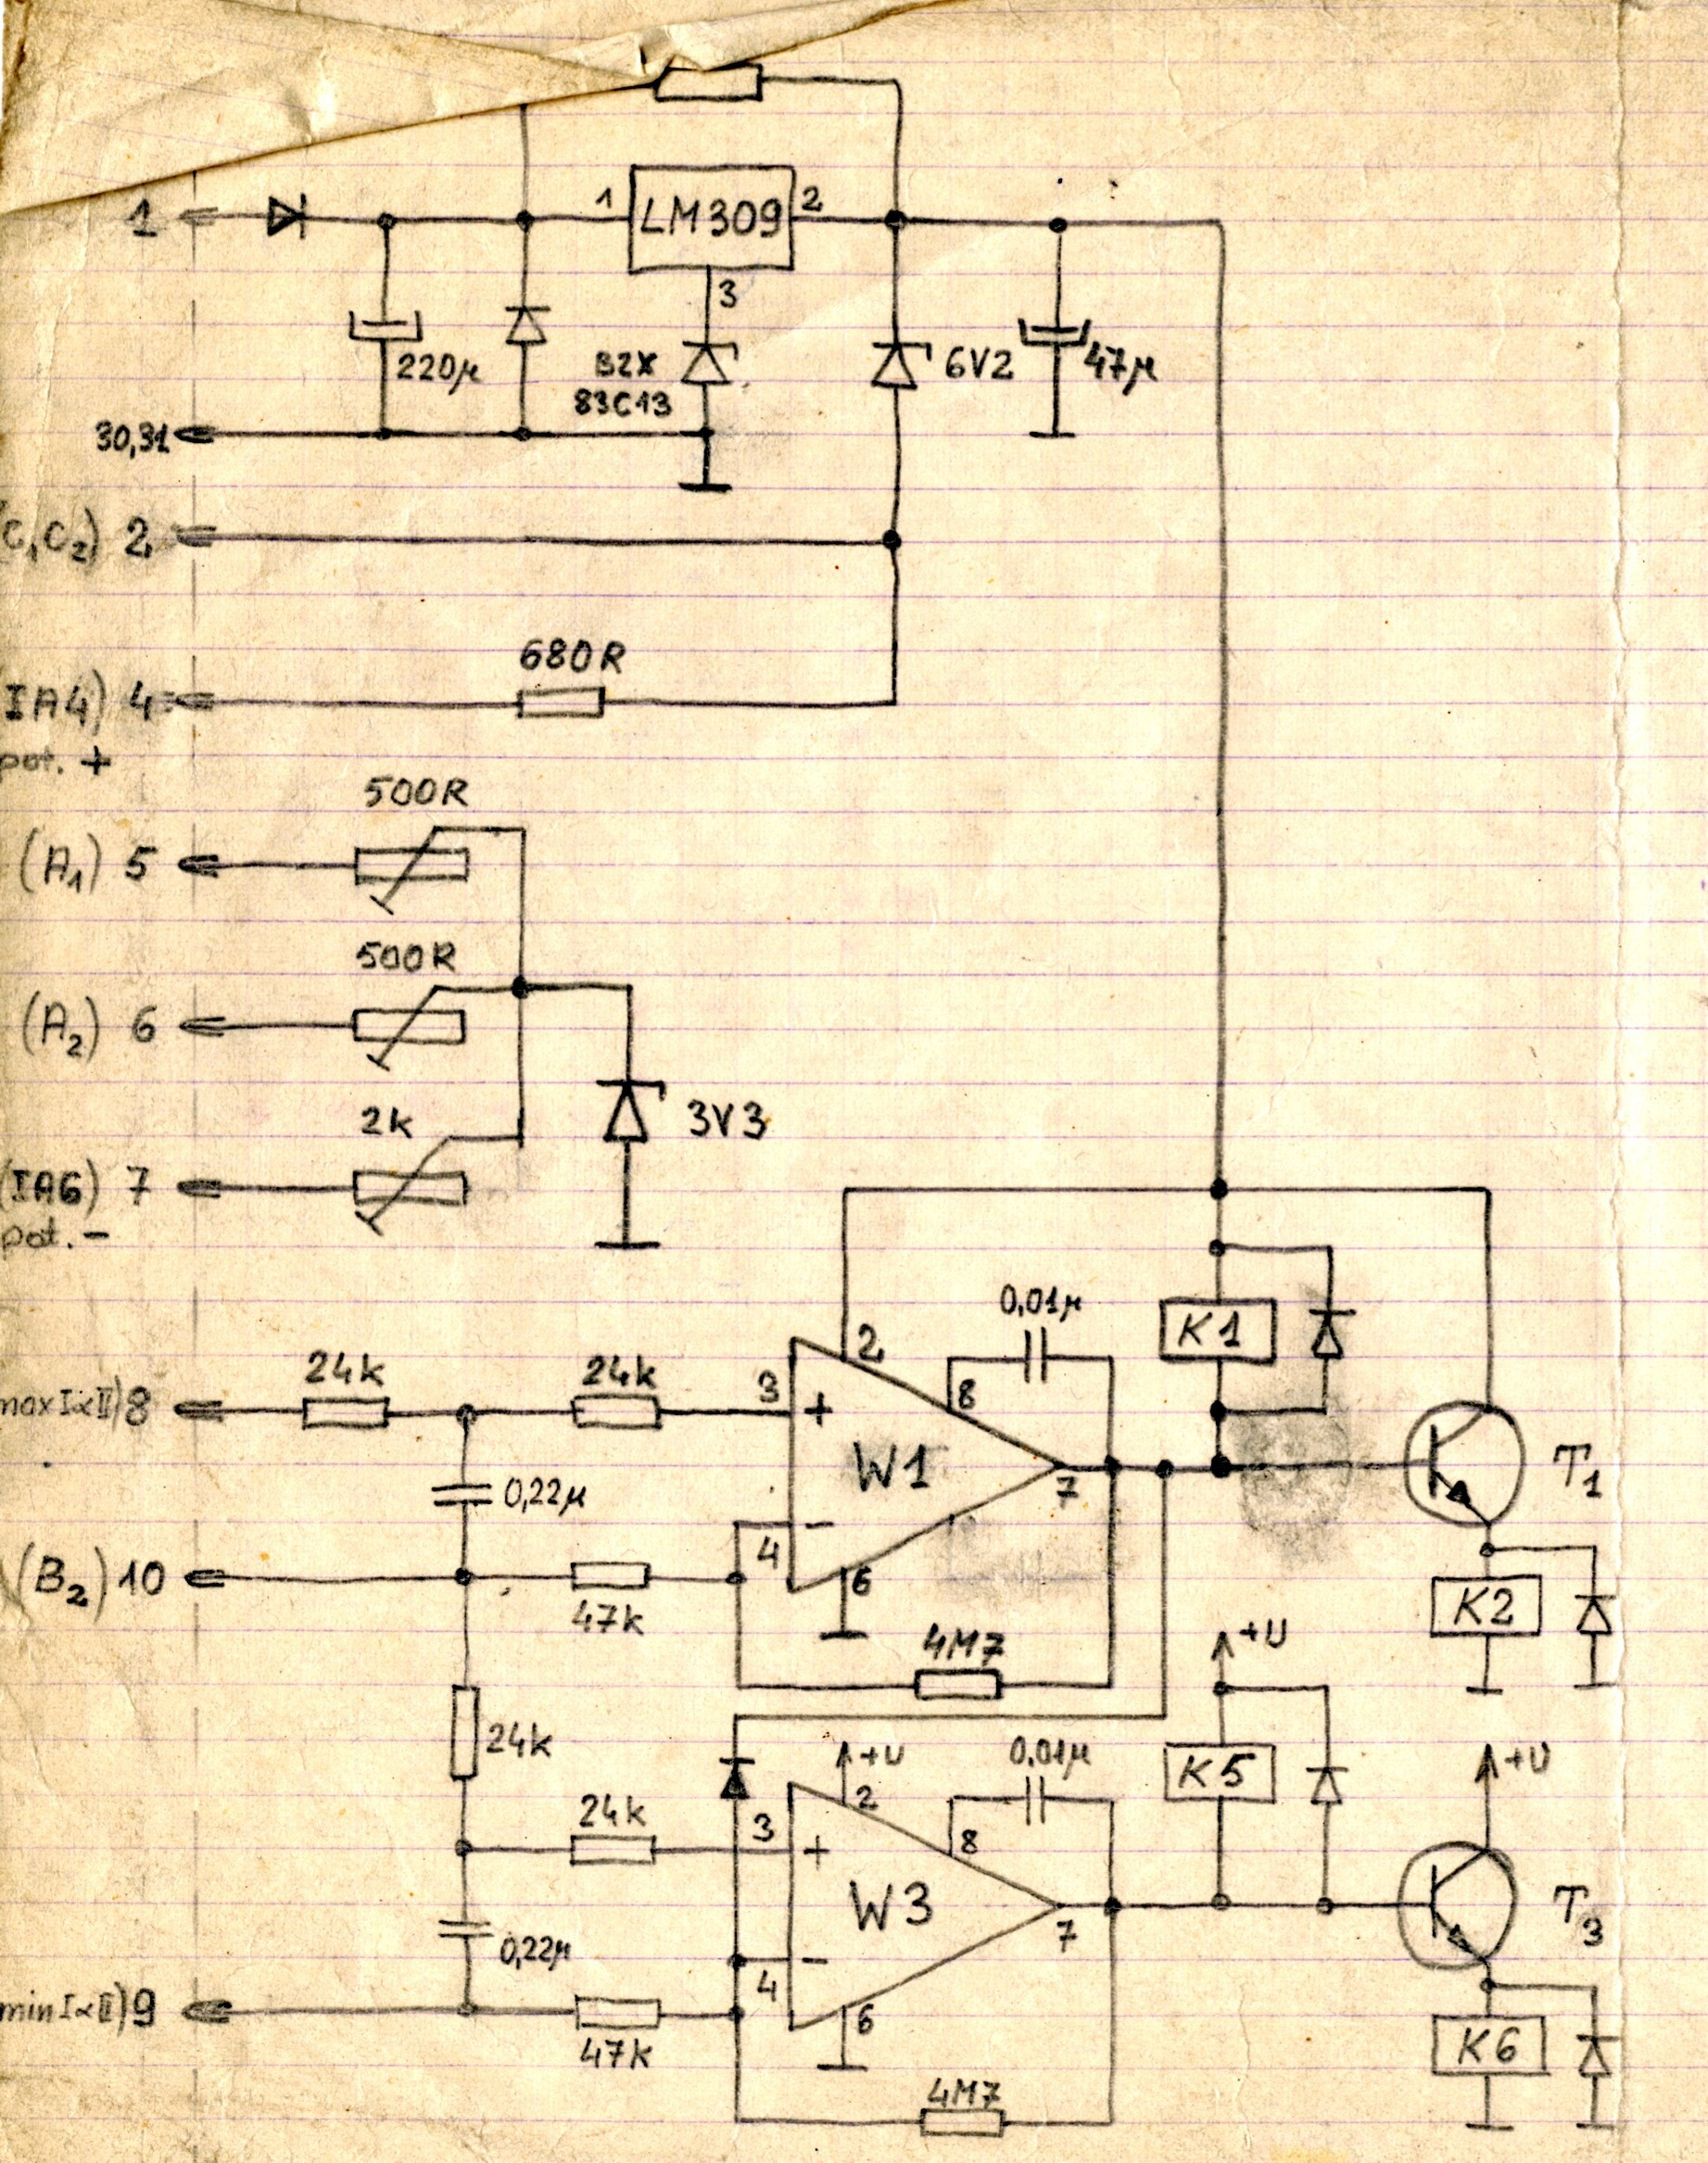 1 1 LM309 2
3
220µ BZX 6V2 47µ
83C13
30,31
C1C2) 2
680R
IA4) 4
pot. +
500R
(A1) 5
500R
(A2) 6
2k 3V3
(IA6) 7
pot. -
0,01µ K1
24k 24k 3 2 8
max I∝II) 8 +
W1 7 T1
0,22µ
4 -
(B2) 10 6 K2
47k
4M7 +U
24k +U 0,01µ K5 +U
24k 3 2 8
+
W3 7 T3
0,22µ -
4
min I∝II) 9 6
47k K6
4M7